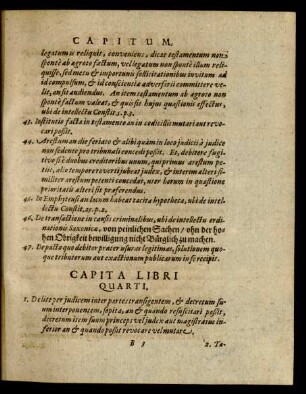 CAPITUM.
legatum is reliquit, conveniens, dicat testamentum non
spontè ab agroto factum, vel legatum non spontè illum reli-
quisse, sed metu & importunis sollicitationibus invitum ad
id compulsum, & id conscientiæ adversarii committere ve-
lit, an sit audiendus. An item testamentum ab agroto non
spontè factum valeat, & quis sit hujus quæstionis effectus,
ubi de intellectu Constit. 1. p. 3.
43. Institutio facta in testamento an in codicillis mutari aut re-
vocari possit.
44. Arrestum an die feriato & alibi quàm in loco judicii à judice
non sedente pro tribunali concedi possit. Et, debitore fugi-
tivo si è duobus creditoribus unum, qui primus arrestum pe-
tiit, alio tempore verti jubeat judex, & interim alteri si-
militer arrestum petenti concedat, uter horum in quæstione
prioritatis alteri sit præferendus.
45. In Emphyteusi an locum habeat tacita hypotheca, ubi de in-
tellectu Constit. 23. p. 2.
46. De transactione in causis criminalibus, ubi de intellectu ordi-
nationis Saxonicæ, von peinlichen Sachen / ohn der ho-
hen Obrigkeit bewilligung nicht Bürglich zu machen.
47. De pacto quo debitor præter usuras legitimas, solutionem quo-
que tributorum aut exactionum publicarum in se recipit.
CAPITA LIBRI
QUARTI.
1. De lite per judicem inter partes transigentem, & decretum su-
um interponentem, sopita, an & quando resuscitari possit,
decretum item suum princeps vel judex aut magistratus in-
ferior an & quando possit revocare vel mutare.
B 3
2. Ta-